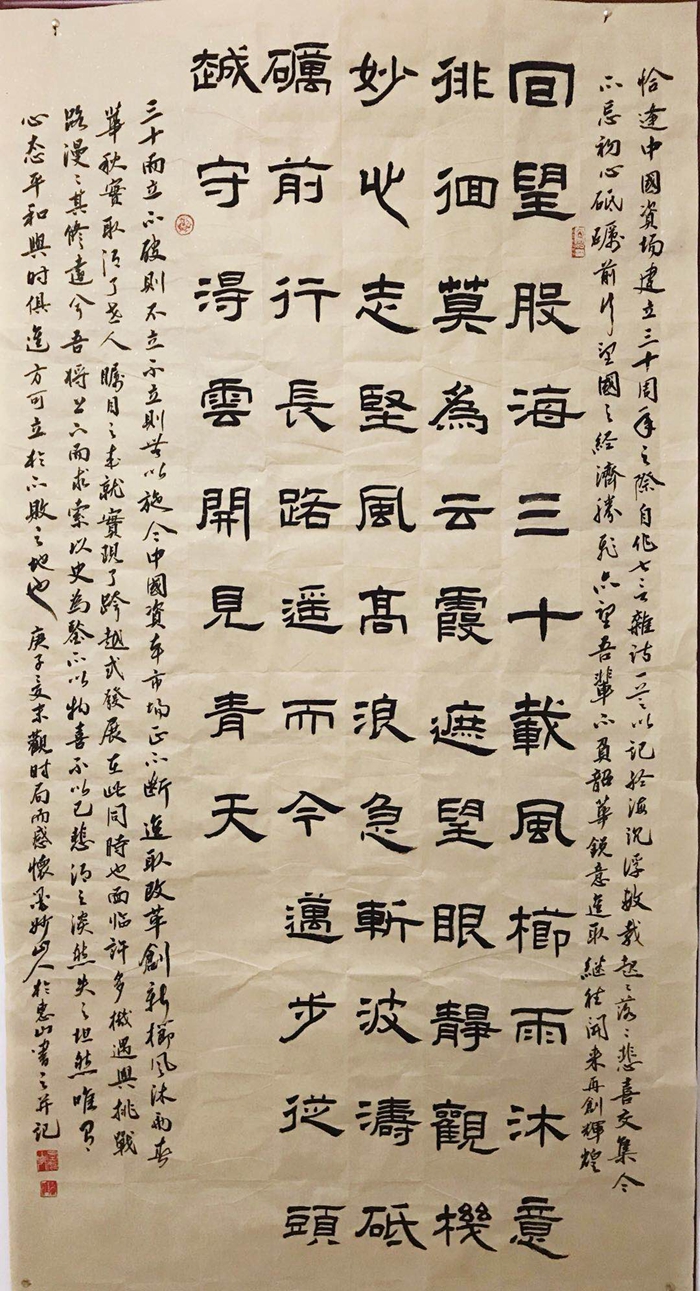 恰逢中國資場建立三十周年之際自作七言雜詩一首以記於海沉浮數載起〻落〻悲喜交集今
不忘初心砥礪前行望國之經濟騰飛亦望吾輩不負韶華銳意進取繼往開来再創輝煌
回望股海三十載風櫛雨沐意
徘徊莫為云霞遮望眼靜觀機
妙心志堅風髙浪急斬波濤砥
礪前行長路遥而今邁步從頭
越守得雲開見青天
三十而立不破則不立不立則無以施今中國資本市場正不斷進取改革創新櫛風沐雨春
華秋實取得了世人矚目之成就實現了跨越式發展在此同時也面临許多機遇與挑戰
路漫〻其修遠兮吾将上下而求索以史為鑒不以物喜不以己悲得之淡然失之坦然唯有
心态平和與时俱進方可立於不敗之地也 庚子末觀时局而感懷妙山人於惠山書之并記